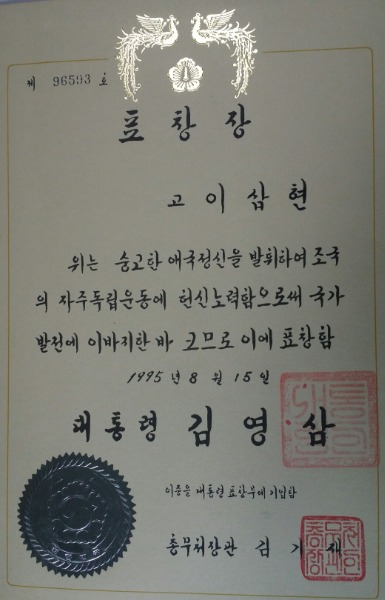 제 96593 호
표창장
고 이삼현
위는 숭고한 애국정신을 발휘하여 조국
의 자주독립운동에 헌신노력함으로써 국가
발전에 이바지한 바 크므로 이에 표창함
1995 년 8 월 15 일
대통령 김영삼
이증을 대통령 표창부에 기입함
총무처장관 김기재